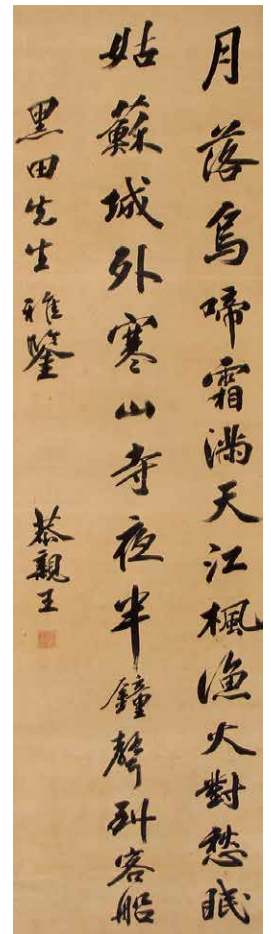 月落烏啼霜滿天江楓漁火對愁眠
姑蘇城外寒山寺夜半鐘聲到客船
黑田先生雅鑒
恭親王